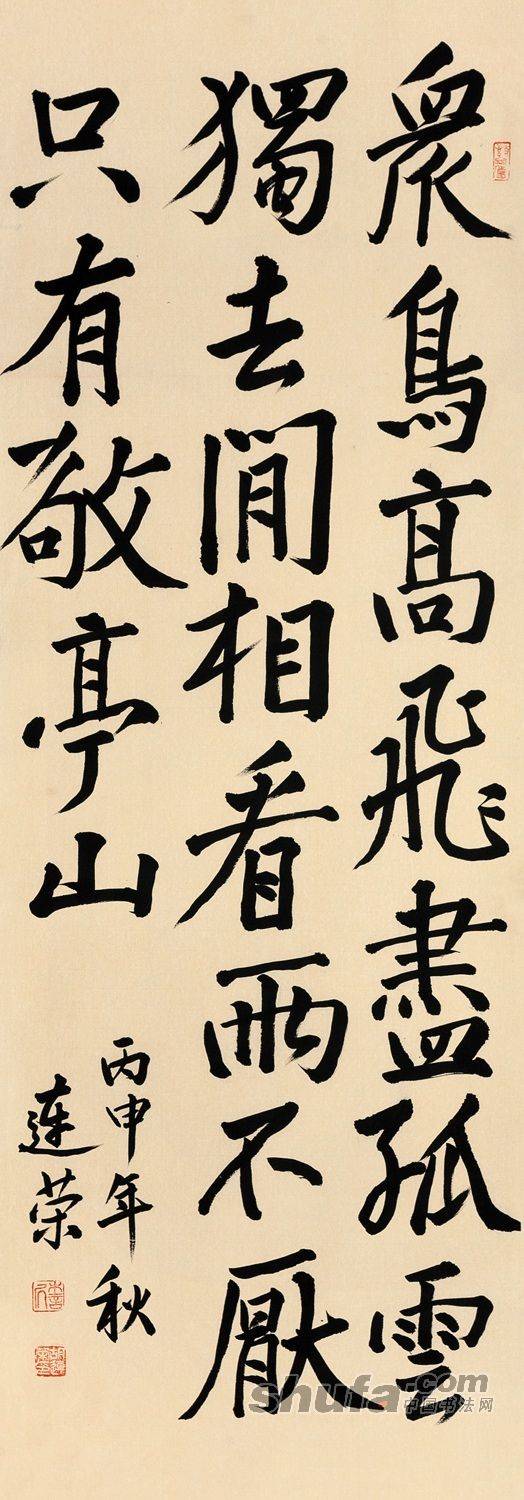 眾鳥高飛盡孤雲
獨去閒相看兩不厭
只有敬亭山
丙申年秋
蓮荣
shufa.com
中国书法网